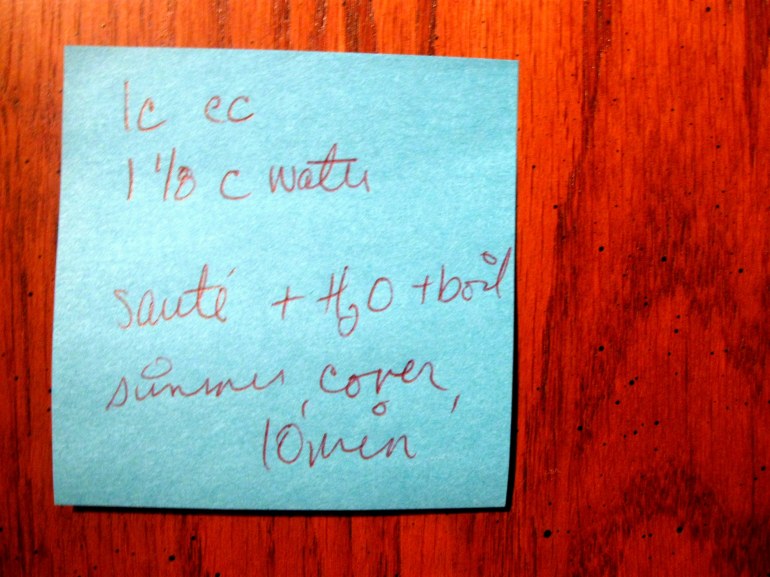 1c cc
1 1/8 c water
sauté + H₂O + boil
simmer, cover,
10 min